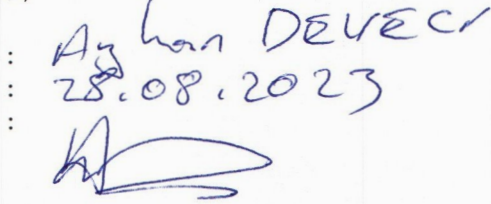 : Ayhan DEVECİ
: 28.08.2023
: